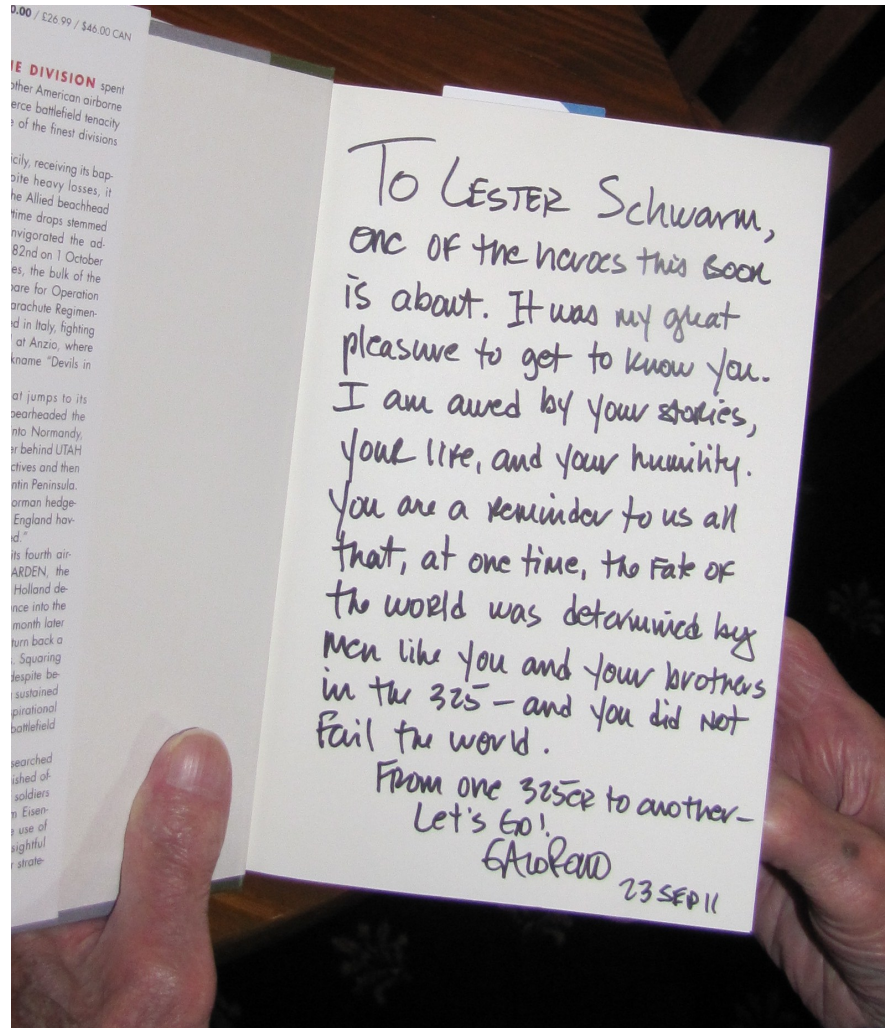 0.00 / £26.99 / $46.00 CAN
IE DIVISION spent
other American airborne
erce battlefield tenacity
e of the finest divisions
icily, receiving its bap-
pite heavy losses, it
he Allied beachhead
time drops stemmed
nvigorated the ad-
82nd on 1 October
es, the bulk of the
pare for Operation
arachute Regimen-
ed in Italy, fighting
at Anzio, where
kname "Devils in
at jumps to its
pearheaded the
nto Normandy,
er behind UTAH
ctives and then
ntin Peninsula.
orman hedge-
England hav-
d."
its fourth air-
ARDEN, the
Holland de-
nce into the
month later
turn back a
. Squaring
despite be-
sustained
pirational
battlefield
searched
ished of-
soldiers
n Eisen-
use of
sightful
strate-
To Lester Schwarm,
one of the heroes this book
is about. It was my great
pleasure to get to know you.
I am awed by your stories,
your life, and your humility.
You are a reminder to us all
that, at one time, the fate of
the world was determined by
men like you and your brothers
in the 325 – and you did not
fail the world.
From one 325er to another –
Let's Go!
23 SEP 11